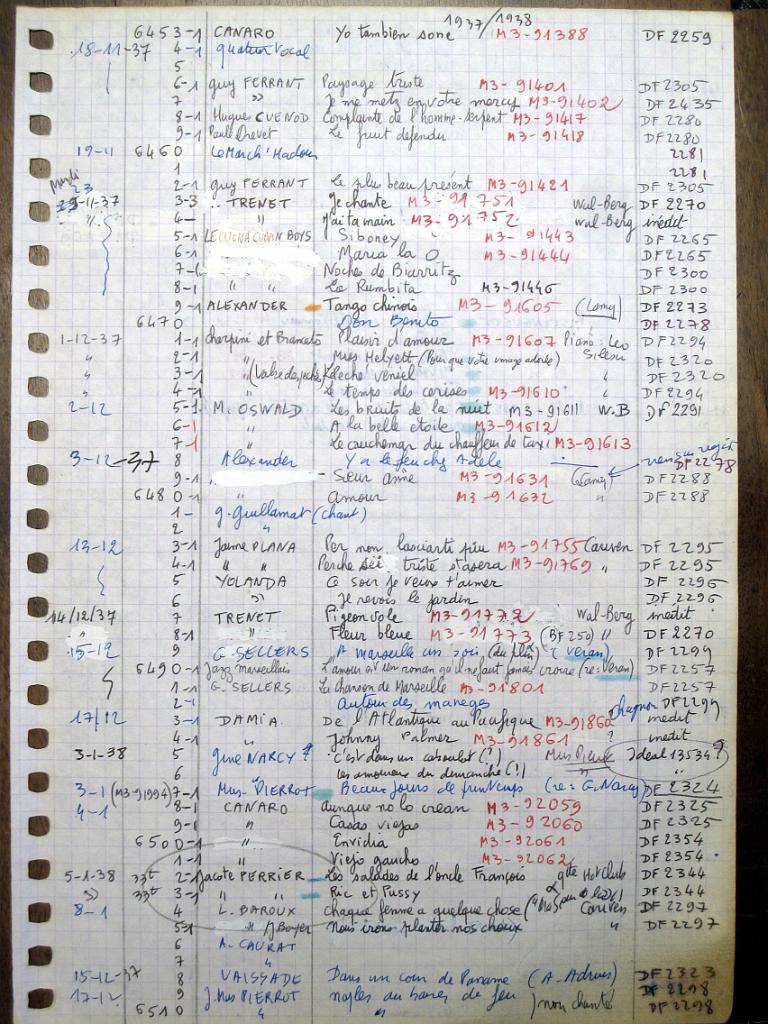 1937/1938
6453-1 CANARO Yo tambien sone M3-91388 DF 2259
18-11-37 4-1 quatuor vocal
5
6-1 guy FERRANT Paysage triste M3-91401 DF 2305
7 " Je me mets en votre mercy M3-91402 DF 2435
8-1 Hugues CUENOD Complainte de l'homme-serpent M3-91417 DF 2280
9-1 Paul Chevet Le fruit défendu M3-91418 DF 2280
19-11 6460 2281
1 2281
Mardi 23 2-1 guy FERRANT Le plus beau présent M3-91421 DF 2305
-11-37 3-3 TRENET Je chante M3-91.751 Wal-Berg DF 2270
" 4- " J'ai ta main M3-91752 Wal-Berg inédit
5-1 LECUONA CUBAN BOYS Siboney M3-91443 DF 2265
6-1 Maria la O M3-91444 DF 2265
7- Noches de Biarritz DF 2300
8-1 La Rumbita M3-91446 DF 2300
9-1 ALEXANDER Tango chinois M3-91605 (Lamy) DF 2273
6470 Don Benito DF 2278
1-12-37 1-1 charpini et Brancato Plaisir d'amour M3-91607 Piano: Leo Silesu DF 2294
" 2-1 " Miss Helyett (Pour que votre image adorée) DF 2320
" 3-1 " péché véniel " DF 2320
" 4-1 " Le temps des cerises M3-91610 " DF 2294
2-12 5-1 M. OSWALD Les bruits de la nuit M3-91611 W.B DF 2291
6-1 " A la belle étoile M3-91612
7-1 " Le cauchemar du chauffeur de taxi M3-91613
3-12-37 8 Alexander Y a le feu chez Adèle DF 2278
9-1 Soeur anne M3-91631 (Lamy) DF 2288
6480-1 " amour M3-91632 " DF 2288
1- g. Guillamat (chant)
2 "
13-12 3-1 Jaime PLANA Per non lasciarti piu M3-91755 Cariven DF 2295
4-1 " " Perche sei triste stasera M3-91769 " DF 2295
5 YOLANDA Ce soir je veux t'aimer DF 2296
6 " Je revois le jardin DF 2296
14/12/37 7 TRENET Pigeon vole M3-91772 Wal-Berg inédit
8-1 " Fleur bleue M3-91773 (BF 250) " DF 2270
15-12 9 G. SELLERS A Marseille un soir (du film) (Veran) DF 2299
6490-1 Jazz marseillais L'amour est un roman qu'il ne faut jamais croire (re: Veran) DF 2257
1-1 G. SELLERS La chanson de Marseille M3-91801 DF 2257
2-1 Autour des manèges chagnon DF 2299
17/12 3-1 DAMIA. De l'Atlantique au Pacifique M3-91860 inédit
4-1 " Johnny Palmer M3-91861 " inédit
3-1-38 5 guy NARCY ? C'est dans un caboulot (?) Mus Pierrot Ideal 13534 ?
6 Les amoureux du dimanche (?) "
3-1 (M3-91994) 7-1 Mus-PIERROT Beaux jours de printemps (re: G. Narcy) DF 2324
4-1 8-1 CANARO aunque no lo crean M3-92059 DF 2325
9-1 " Casas viejas M3-92060 DF 2325
6500-1 " Envidia M3-92061 DF 2354
1-1 " Viejo gaucho M3-92062 DF 2354
5-1-38 33t 2-1 Jacote PERRIER Les salades de l'oncle François qtte Hot Club DF 2344
" 33t 3-1 " " Ric et Pussy DF 2344
8-1 4 L. BAROUX Chaque femme a quelque chose Cariven DF 2297
5-1 " /J Boyer Nous irons planter nos choux " DF 2297
6 A. CAURAT
7 "
15-12-37 8 VAISSADE Dans un coin de Paname (A. Adrius) DF 2323
17-12 9 J. Mus PIERROT DF 2298
6510 " " non chanté DF 2298